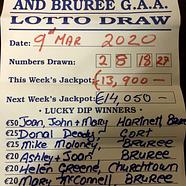 AND BRUREE G.A.A.
LOTTO DRAW
Date: 9th MAR 2020
Numbers Drawn: 2 8 18 27
This Week's Jackpot: €13,900 —
Next Week's Jackpot: €14,050 —
• LUCKY DIP WINNERS •
€50 Joan, John + Mary Hartnett, Bruree
€25 Donal Deady - GORT
€25 Mike Moloney, BRUREE
€20 Ashley + Joan BRUREE
€20 Helen Greene, Churchtown
€20 Mary McConnell BRUREE